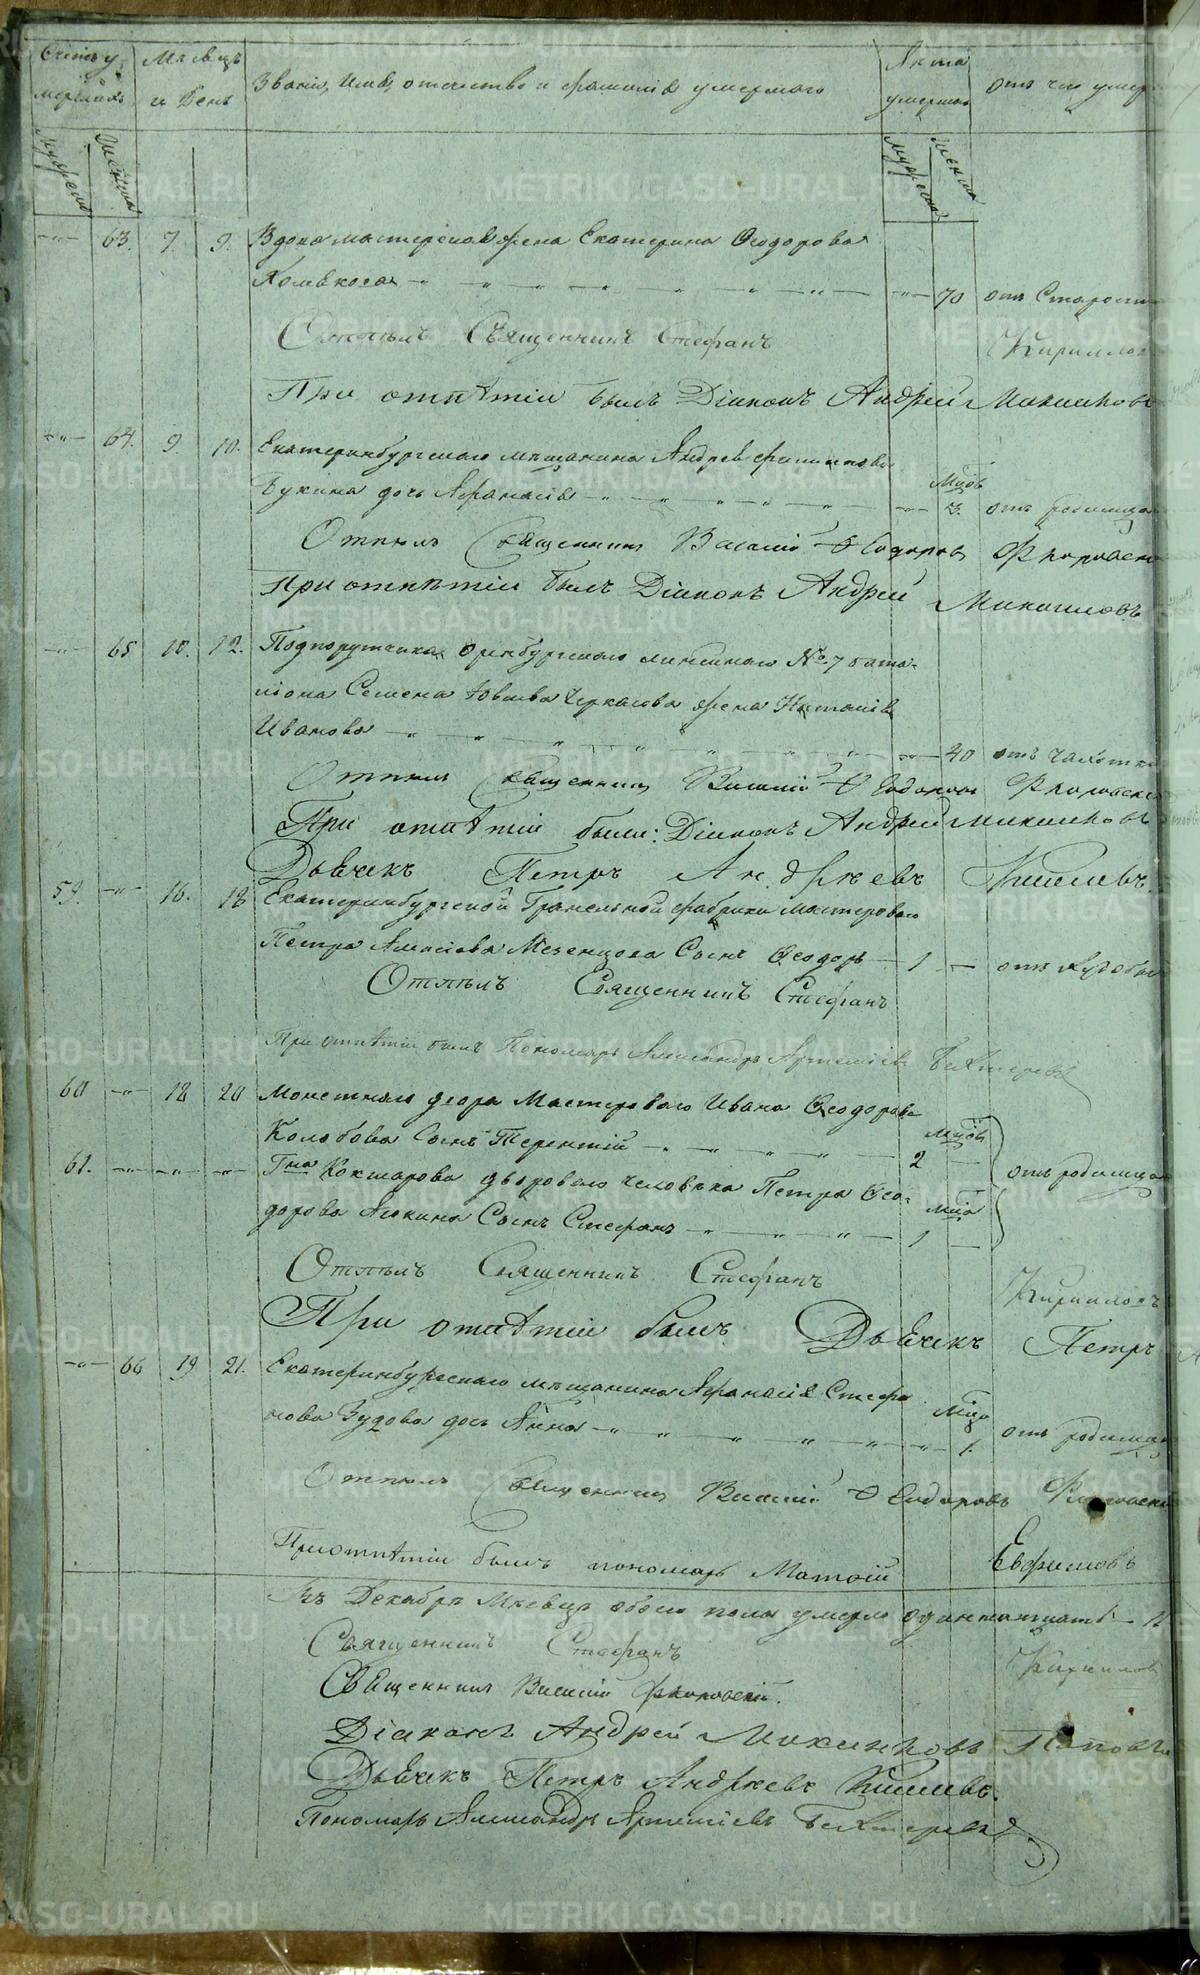 Счетъ умершихъ
Мѣсяцъ и День
Званіе, имя, отечество и фамилія умершаго
Лѣта умершаго
отъ чего умеръ
мужеска женска
мужеска женска
63. 7. 9. Вдова мастерская жена Екатерина Ѳеодорова
70 отъ Старости
Отпѣлъ Священникъ Стефанъ Кирилловъ
При отпѣтіи былъ Діаконъ Андрей
64. 9. 10. Екатеринбургскаго мѣщанина Андрея Филиппова
Букина дочь Афанасія 3. отъ родимца
Отпѣлъ Священникъ Василій Ѳеодоровъ Флоровск
При отпѣтіи былъ Діаконъ Андрей
65 10. 12. Подпорутчика Оренбургскаго линейнаго № 7 бата-
ліона Семена Іовлева Черкасова жена Наталія
Иванова 40 отъ чахотки
Отпѣлъ Священникъ Василій Ѳеодоровъ Флоровск
При отпѣтіи были: Діаконъ Андрей
Дьячекъ Петръ Андреевъ Киселевъ.
59. 16. 18 Екатеринбургской Гранильной фабрики мастероваго
Петра Алексіева Мезенцова Сынъ Ѳеодоръ 1
Отпѣлъ Священникъ Стефанъ
При отпѣтіи былъ Пономарь Александръ Артеміевъ Бехтеревъ
60 18 20 Монетнаго двора Мастероваго Ивана Ѳеодорова
Колобова Сынъ Терентій 2 отъ родимца
61. Гна Кокшарова двороваго человѣка Петра Ѳео-
дорова Алюкина Сынъ Стефанъ 1
Отпѣлъ Священникъ Стефанъ Кирилловъ
При отпѣтіи былъ Дьячекъ Петръ
66 19 21. Екатеринбургскаго мѣщанина Афанасія Стефа
нова Зудова дочь Анна 1. отъ родимца
Отпѣлъ Священникъ Василій Ѳеодоровъ
При отпѣтіи былъ пономарь Матѳій Евфимовъ
Въ Декабрѣ Мѣсяцѣ обоего пола умерло одиннатцать 11
Священникъ Стефанъ Кирилловъ
Священникъ Василій Флоровскій.
Діаконъ Андрей Поповъ
Дьячекъ Петръ Андреевъ Киселевъ.
Пономарь Александръ Артеміевъ Бехтеревъ
METRIKI.GASO-URAL.RU